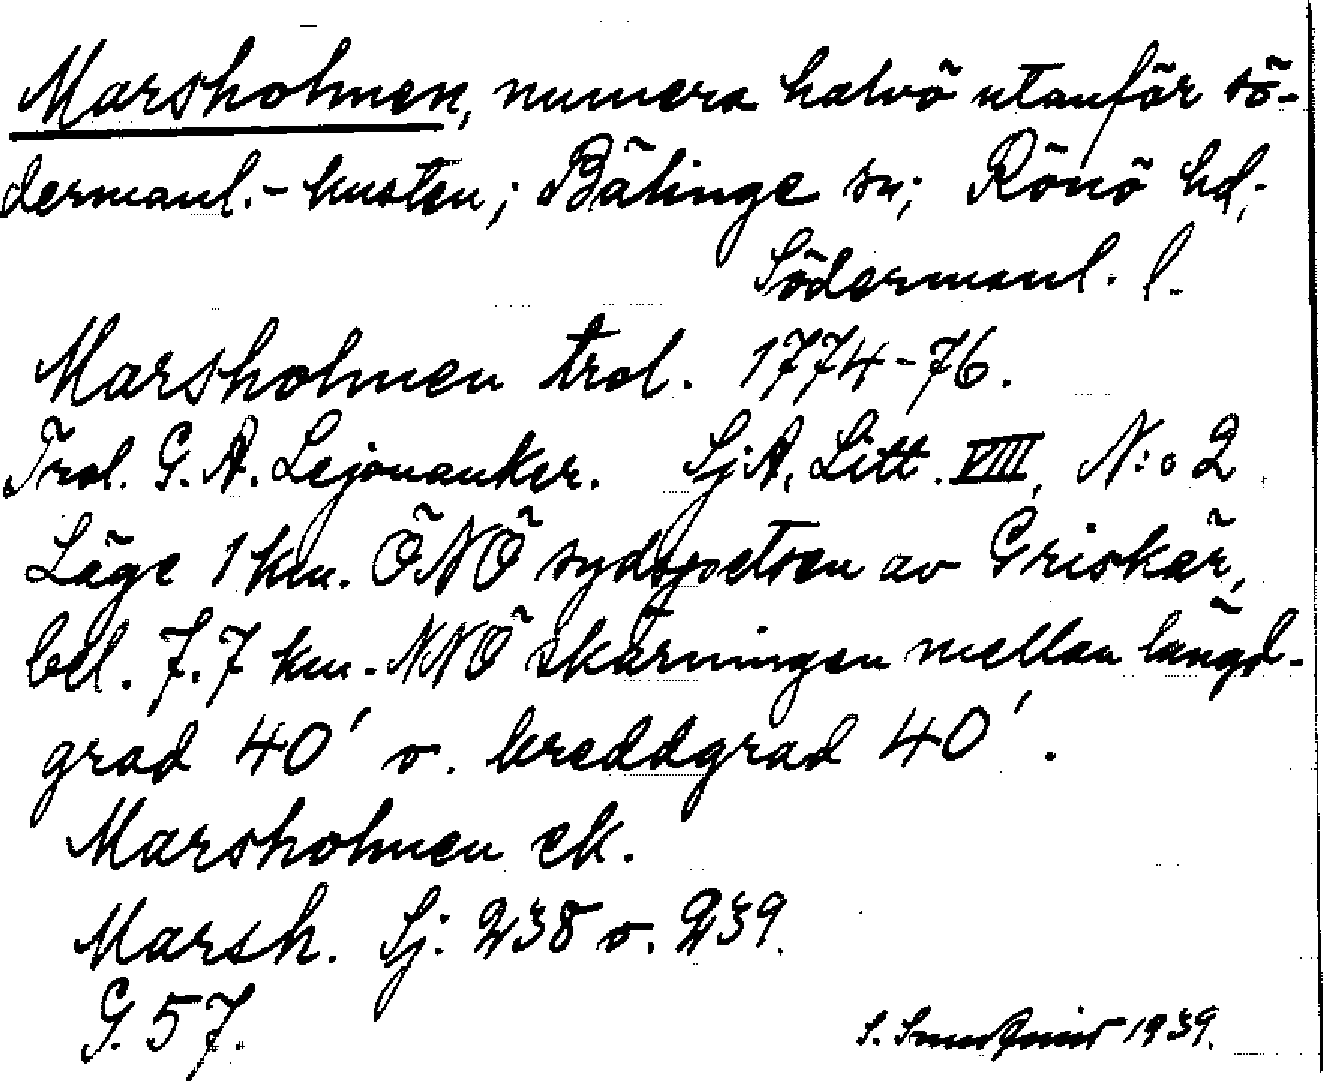 Marsholmen, numera halvö utanför sö-
dermanl.- kusten; Bälinge sn; Rönö hd,
Södermanl. l.
Marsholmen trol. 1774-76.
Trol. G. A. Lejonanker. Sj.A. Litt. VIII, N:o 2
Läge 1 km. ÖNÖ sydspetsen av Griskär,
bel. 7.7 km. NNÖ skärningen mellan längd-
grad 40' o. breddgrad 40'.
Marsholmen ek.
Marsh. Sj: 238 o. 239.
G. 57.
S. 1939.